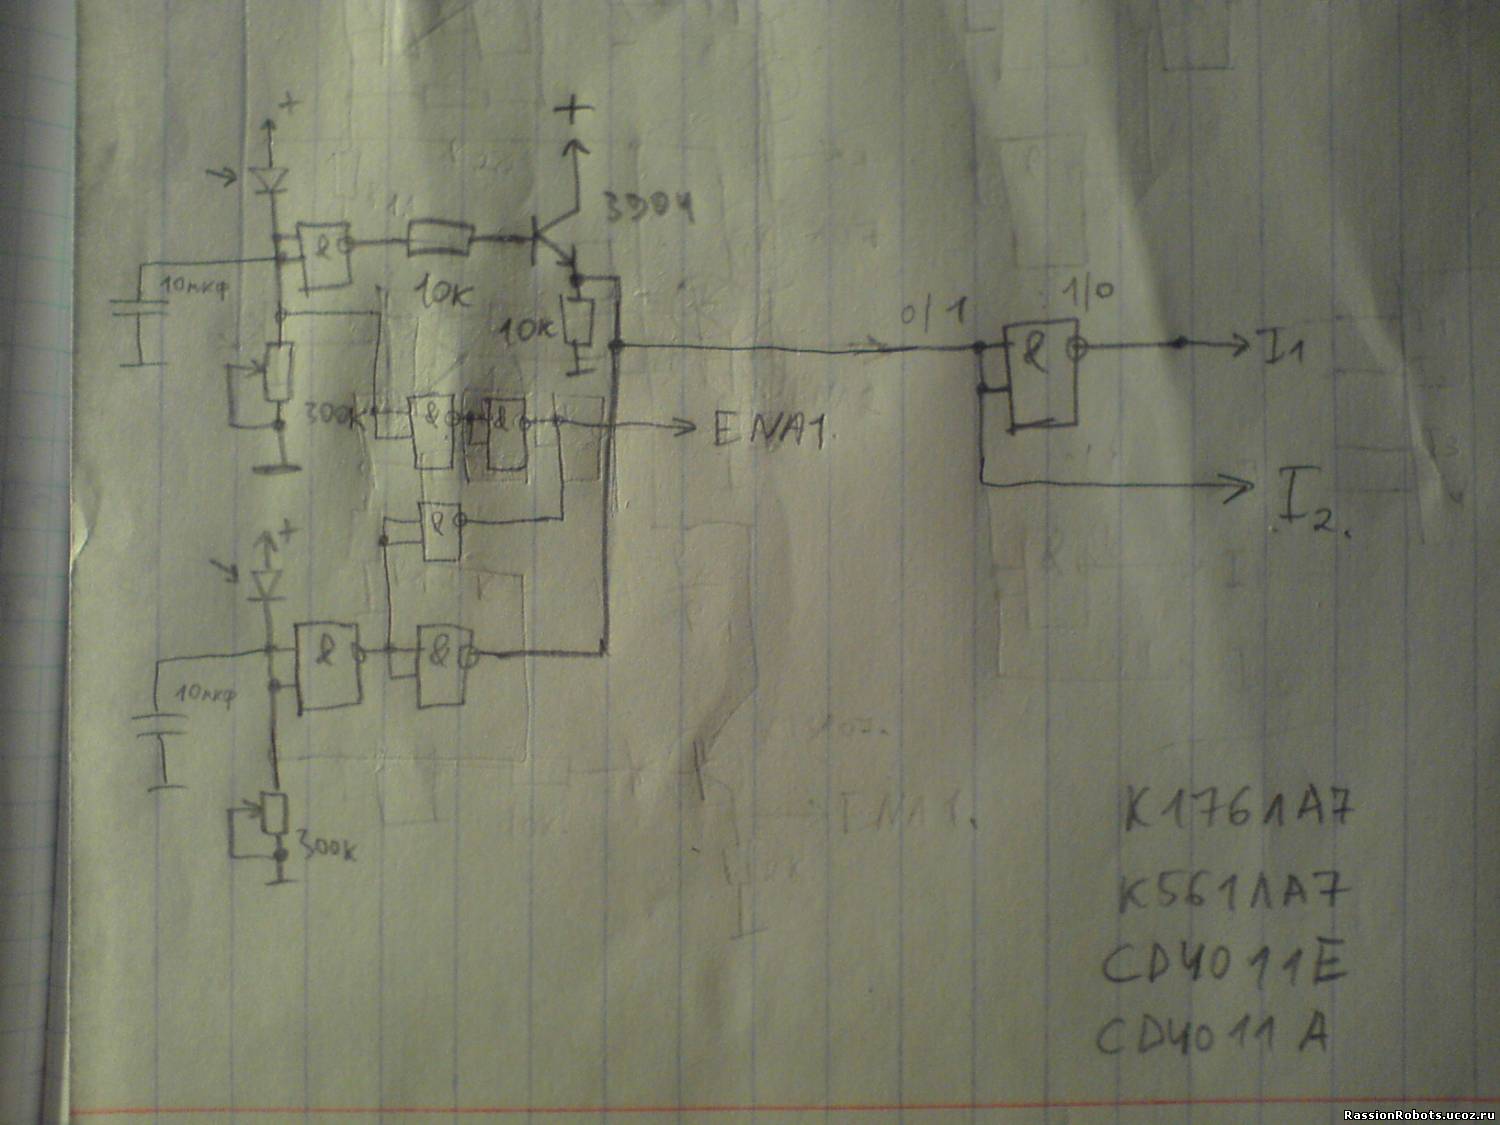 +
+
3904
&
10мкф
10к
10к
0/1
1/0
&
I1
300к
&
&
ENA1.
I2.
&
+
&
&
10мкф
ENA1.
300к
К176ЛА7
К561ЛА7
CD4011E
CD4011A
RassionRobots.ucoz.ru